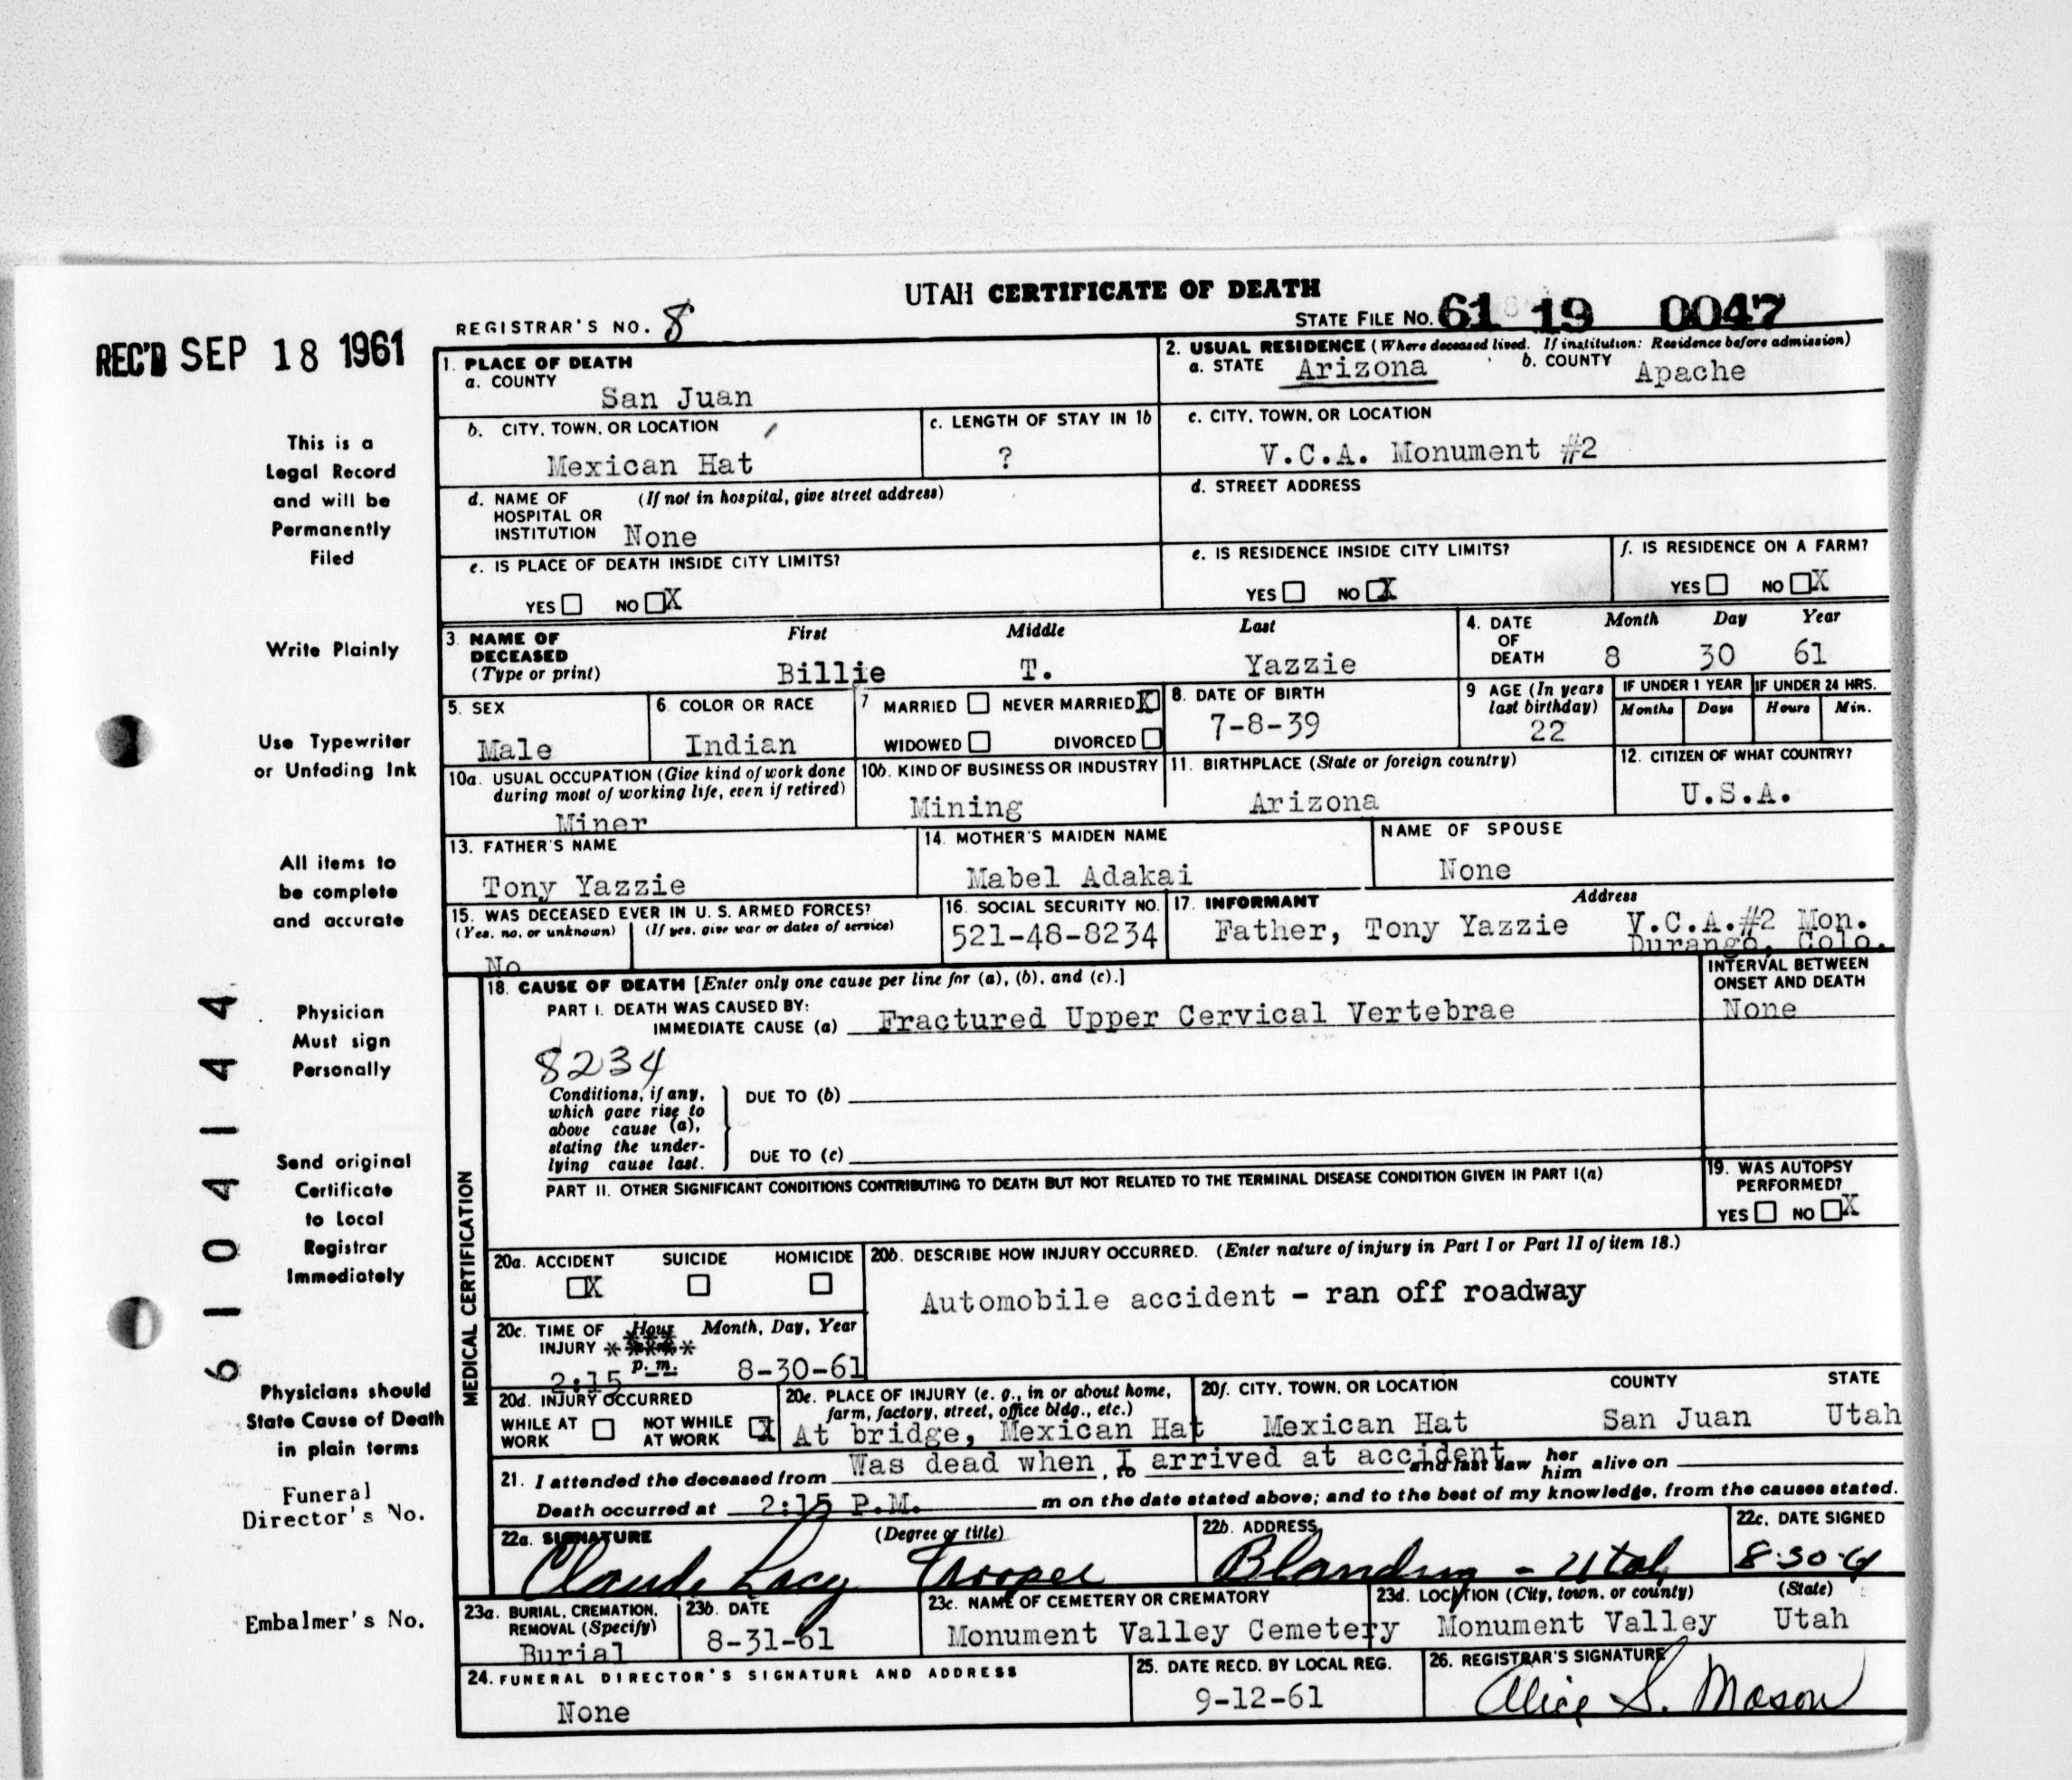 UTAH CERTIFICATE OF DEATH
REGISTRAR'S NO. 8
STATE FILE NO. 61 19 0047
REC'D SEP 18 1961
This is a
Legal Record
and will be
Permanently
Filed
Write Plainly
Use Typewriter
or Unfading Ink
All items to
be complete
and accurate
Physician
Must sign
Personally
Send original
Certificate
to Local
Registrar
Immediately
Physicians should
State Cause of Death
in plain terms
Funeral
Director's No.
Embalmer's No.
6104144
1. PLACE OF DEATH
a. COUNTY
San Juan
2. USUAL RESIDENCE (Where deceased lived. If institution: Residence before admission)
a. STATE Arizona b. COUNTY Apache
b. CITY, TOWN, OR LOCATION
Mexican Hat
c. LENGTH OF STAY IN 1b
?
c. CITY, TOWN, OR LOCATION
V.C.A. Monument #2
d. NAME OF (If not in hospital, give street address)
HOSPITAL OR
INSTITUTION None
d. STREET ADDRESS
e. IS PLACE OF DEATH INSIDE CITY LIMITS?
YES NO X
e. IS RESIDENCE INSIDE CITY LIMITS?
YES NO X
f. IS RESIDENCE ON A FARM?
YES NO X
3. NAME OF First Middle Last
DECEASED
(Type or print) Billie T. Yazzie
4. DATE Month Day Year
OF
DEATH 8 30 61
5. SEX
Male
6. COLOR OR RACE
Indian
7 MARRIED NEVER MARRIED X
WIDOWED DIVORCED
8. DATE OF BIRTH
7-8-39
9 AGE (In years
last birthday)
22
IF UNDER 1 YEAR
Months Days
IF UNDER 24 HRS.
Hours Min.
10a. USUAL OCCUPATION (Give kind of work done
during most of working life, even if retired)
Miner
10b. KIND OF BUSINESS OR INDUSTRY
Mining
11. BIRTHPLACE (State or foreign country)
Arizona
12. CITIZEN OF WHAT COUNTRY?
U.S.A.
13. FATHER'S NAME
Tony Yazzie
14. MOTHER'S MAIDEN NAME
Mabel Adakai
NAME OF SPOUSE
None
15. WAS DECEASED EVER IN U. S. ARMED FORCES?
(Yes, no, or unknown) (If yes, give war or dates of service)
No
16. SOCIAL SECURITY NO.
521-48-8234
17. INFORMANT Address
Father, Tony Yazzie V.C.A.#2 Mon.
Durango, Colo.
MEDICAL CERTIFICATION
18. CAUSE OF DEATH [Enter only one cause per line for (a), (b), and (c).]
PART I. DEATH WAS CAUSED BY:
IMMEDIATE CAUSE (a) Fractured Upper Cervical Vertebrae
INTERVAL BETWEEN
ONSET AND DEATH
None
8234
Conditions, if any,
which gave rise to
above cause (a),
stating the under-
lying cause last.
DUE TO (b)
DUE TO (c)
PART II. OTHER SIGNIFICANT CONDITIONS CONTRIBUTING TO DEATH BUT NOT RELATED TO THE TERMINAL DISEASE CONDITION GIVEN IN PART I(a)
19. WAS AUTOPSY
PERFORMED?
YES NO X
20a. ACCIDENT SUICIDE HOMICIDE
X
20b. DESCRIBE HOW INJURY OCCURRED. (Enter nature of injury in Part I or Part II of item 18.)
Automobile accident - ran off roadway
20c. TIME OF Hour Month, Day, Year
INJURY
2:15 p.m. 8-30-61
20d. INJURY OCCURRED
WHILE AT NOT WHILE
WORK AT WORK X
20e. PLACE OF INJURY (e. g., in or about home,
farm, factory, street, office bldg., etc.)
At bridge, Mexican Hat
20f. CITY, TOWN, OR LOCATION COUNTY STATE
Mexican Hat San Juan Utah
Was dead when I arrived at accident
21. I attended the deceased from , to and last saw her him alive on
Death occurred at 2:15 P.M. m on the date stated above; and to the best of my knowledge, from the causes stated.
22a. SIGNATURE (Degree or title)
Claude Lacy Trooper
22b. ADDRESS
Blanding - Utah
22c. DATE SIGNED
8-30-61
23a. BURIAL, CREMATION,
REMOVAL (Specify)
Burial
23b. DATE
8-31-61
23c. NAME OF CEMETERY OR CREMATORY
Monument Valley Cemetery
23d. LOCATION (City, town, or county) (State)
Monument Valley Utah
24. FUNERAL DIRECTOR'S SIGNATURE AND ADDRESS
None
25. DATE RECD. BY LOCAL REG.
9-12-61
26. REGISTRAR'S SIGNATURE
Alice S. Mason